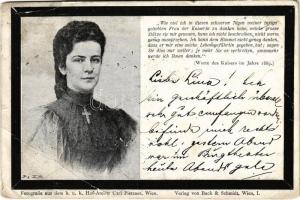 „Wie viel ich in diesen schweren Tagen meiner innigst-
geliebten Frau der Kaiserin zu danken habe, welche grosse
Stütze sie mir gewesen, kann ich nicht beschreiben, nicht warm
genug aussprechen. Ich kann dem Himmel nicht genug danken,
dass er mir eine solche Lebensgefährtin gegeben hat; sagen
Sie dies nur weiter; je mehr Sie es verbreiten, umsomehr
werde ich Ihnen danken.“
(Worte des Kaisers im Jahre 1889.)
Liebe Lina!
ein
befinde mich recht
wohl, gestern Abend
war im Burgtheater
heute Abend
Fotografie aus dem k. u. k. Hof-Atelier Carl Pietzner, Wien.
Verlag von Back & Schmidt, Wien, I.